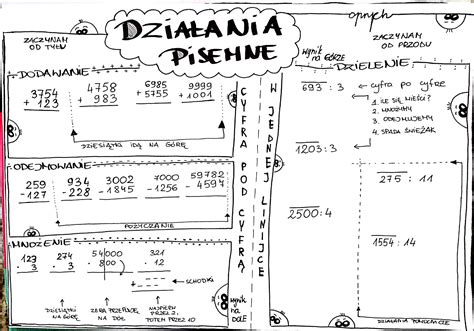 ZACZYNAM
OD TYŁU
DZIAŁANIA
PISEMNE
ZACZYNAM
OD PRZODU
DODAWANIE
3754
+ 123
4758
+ 983
6985
+ 5755
9999
+ 1001
DZIESIĄTKI IDĄ NA GÓRĘ
ODEJMOWANIE
259
-127
934
-228
3002
-1845
7000
-1256
59782
- 4597
POŻYCZANIE
MNOŻENIE
123
. 3
274
. 3
54000
. 800
321
. 12
+
SCHODKI
DZIESIĄTKI
NA GÓRĘ
ZERA PRZEPISZĘ
NA DÓŁ
NAJPIERW
PRZEZ 2,
POTEM PRZEZ 10
CYFRA POD CYFRĄ?
W JEDNEJ LINIJCE
Wynik
na
DOLE
Wynik
na GÓRZE
DZIELENIE
693 : 3
cyfra po cyfrze
1. ILE SIĘ MIEŚCI?
2. MNOŻYMY
3. ODEJMUJEMY
4. SPADA ŚWIEŻAK
1203 : 3
2500 : 4
275 : 11
1554 : 14
DZIAŁANIA POMOCNICZE